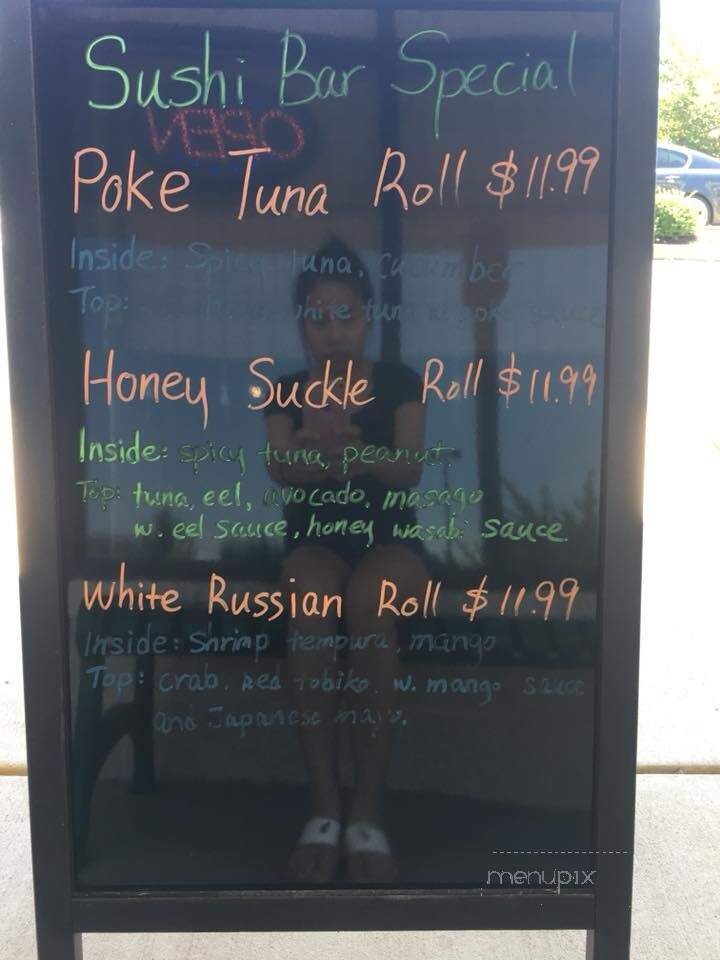 Sushi Bar Special
OPEN
Poke Tuna Roll $11.99
Inside: Spicy tuna, cucumber
Top: white tuna w. poke sauce
Honey Suckle Roll $11.99
Inside: spicy tuna, peanut
Top: tuna, eel, avocado, masago
w. eel sauce, honey wasabi sauce.
White Russian Roll $11.99
Inside: Shrimp tempura, mango
Top: crab, Red tobiko, w. mango sauce
and Japanese mayo.
menupix